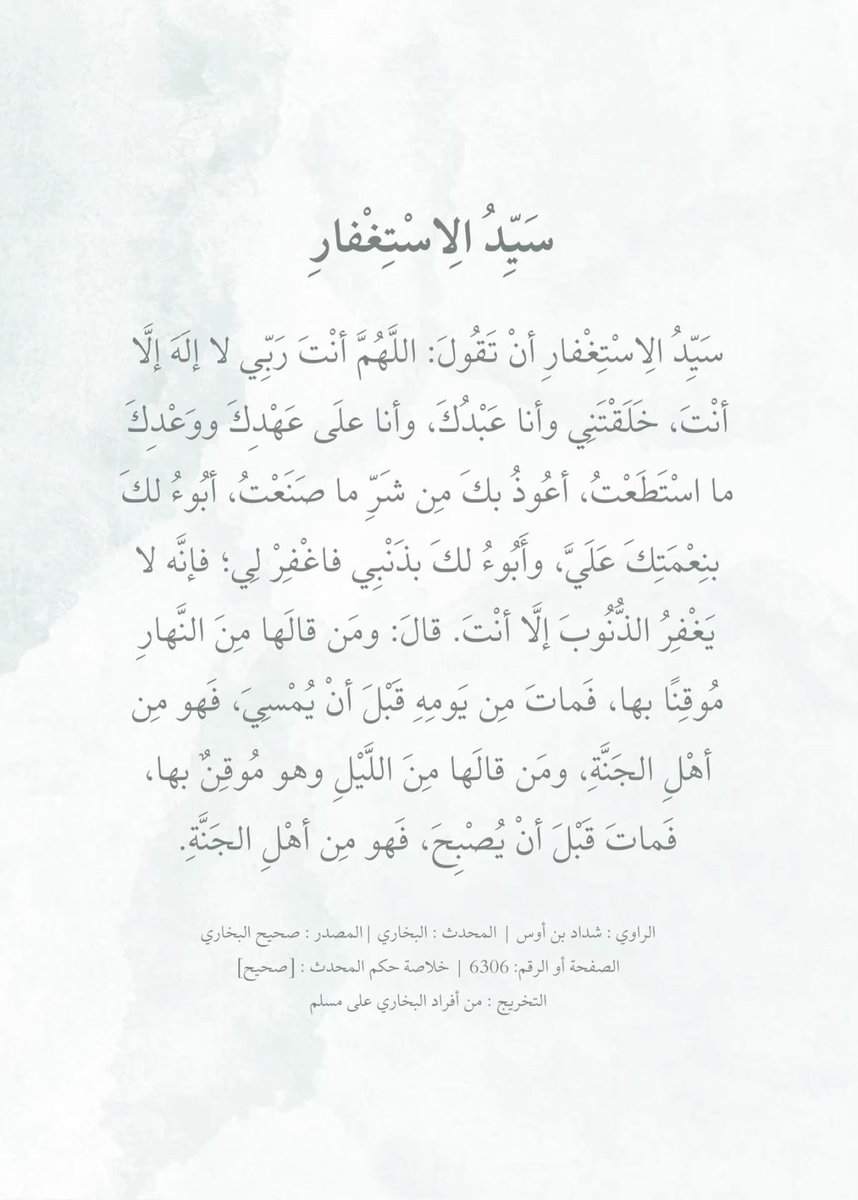 سَيِّدُ الِاسْتِغْفارِ
سَيِّدُ الِاسْتِغْفارِ أنْ تَقُولَ: اللَّهُمَّ أنْتَ رَبِّي لا إلَهَ إلَّا
أنْتَ، خَلَقْتَنِي وأنا عَبْدُكَ، وأنا علَى عَهْدِكَ ووَعْدِكَ
ما اسْتَطَعْتُ، أعُوذُ بكَ مِن شَرِّ ما صَنَعْتُ، أبُوءُ لكَ
بنِعْمَتِكَ عَلَيَّ، وأَبُوءُ لكَ بذَنْبِي فاغْفِرْ لِي؛ فإنَّه لا
يَغْفِرُ الذُّنُوبَ إلَّا أنْتَ. قالَ: ومَن قالَها مِنَ النَّهارِ
مُوقِنًا بها، فَماتَ مِن يَومِهِ قَبْلَ أنْ يُمْسِيَ، فَهو مِن
أهْلِ الجَنَّةِ، ومَن قالَها مِنَ اللَّيْلِ وهو مُوقِنٌ بها،
فَماتَ قَبْلَ أنْ يُصْبِحَ، فَهو مِن أهْلِ الجَنَّةِ.
الراوي : شداد بن أوس | المحدث : البخاري |المصدر : صحيح البخاري
الصفحة أو الرقم: 6306 | خلاصة حكم المحدث : [صحيح]
التخريج : من أفراد البخاري على مسلم